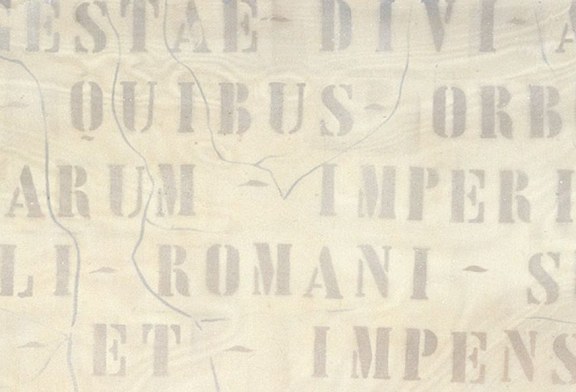 GESTAE DIVI A
QUIBUS - ORB
ARUM - IMPERI
LI - ROMANI - S
ET - IMPENS